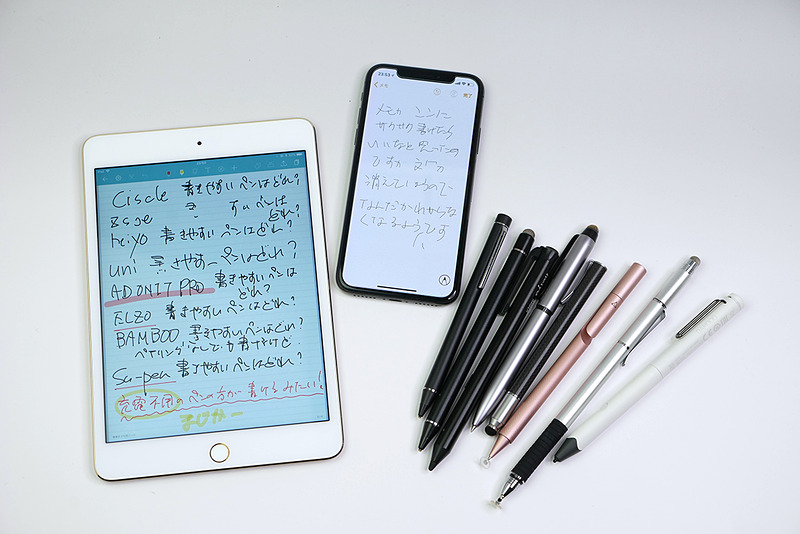 Ciscle 書きやすいペンはどれ?
き すいペンは
どれ?
heiyo 書きやすいペンはどれ?
uni きやすーペンはどれ?
ADONIT PRO 書きやすいペンは
どれ?
ELZO 書きやすいペンはどれ?
BAMBOO 書きやすいペンはどれ?
ペアリングなしでも書けるけど
Su-pen 書きやすいペンはどれ?
充電不用のペンの方が書けるみたい!
まじかー
23:53
メモ
完了
メモか ミンに
サクサク書けたら
いいなと思ったの
ですが 文字が
消えているので
なんだかわからな
くなるようです